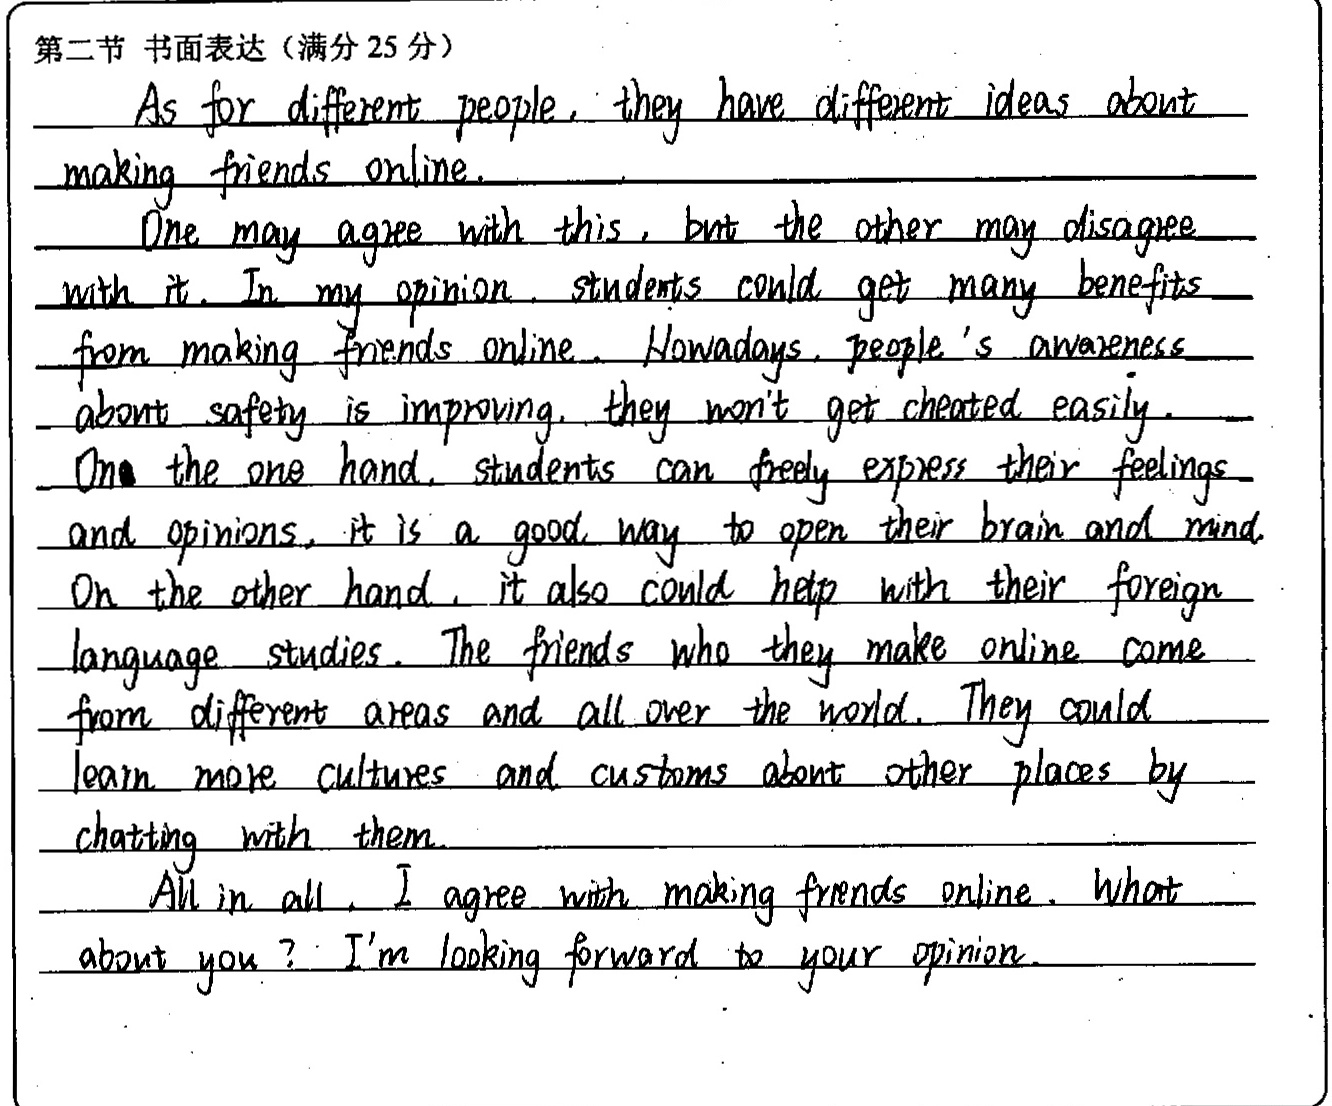 第二节 书面表达（满分 25 分）
As for different people, they have different ideas about
making friends online.
One may agree with this, but the other may disagree
with it. In my opinion, students could get many benefits
from making friends online. Nowadays, people's awareness
about safety is improving, they won't get cheated easily.
On the one hand, students can freely express their feelings
and opinions, it is a good way to open their brain and mind.
On the other hand, it also could help with their foreign
language studies. The friends who they make online come
from different areas and all over the world. They could
learn more cultures and customs about other places by
chatting with them.
All in all, I agree with making friends online. What
about you? I'm looking forward to your opinion.